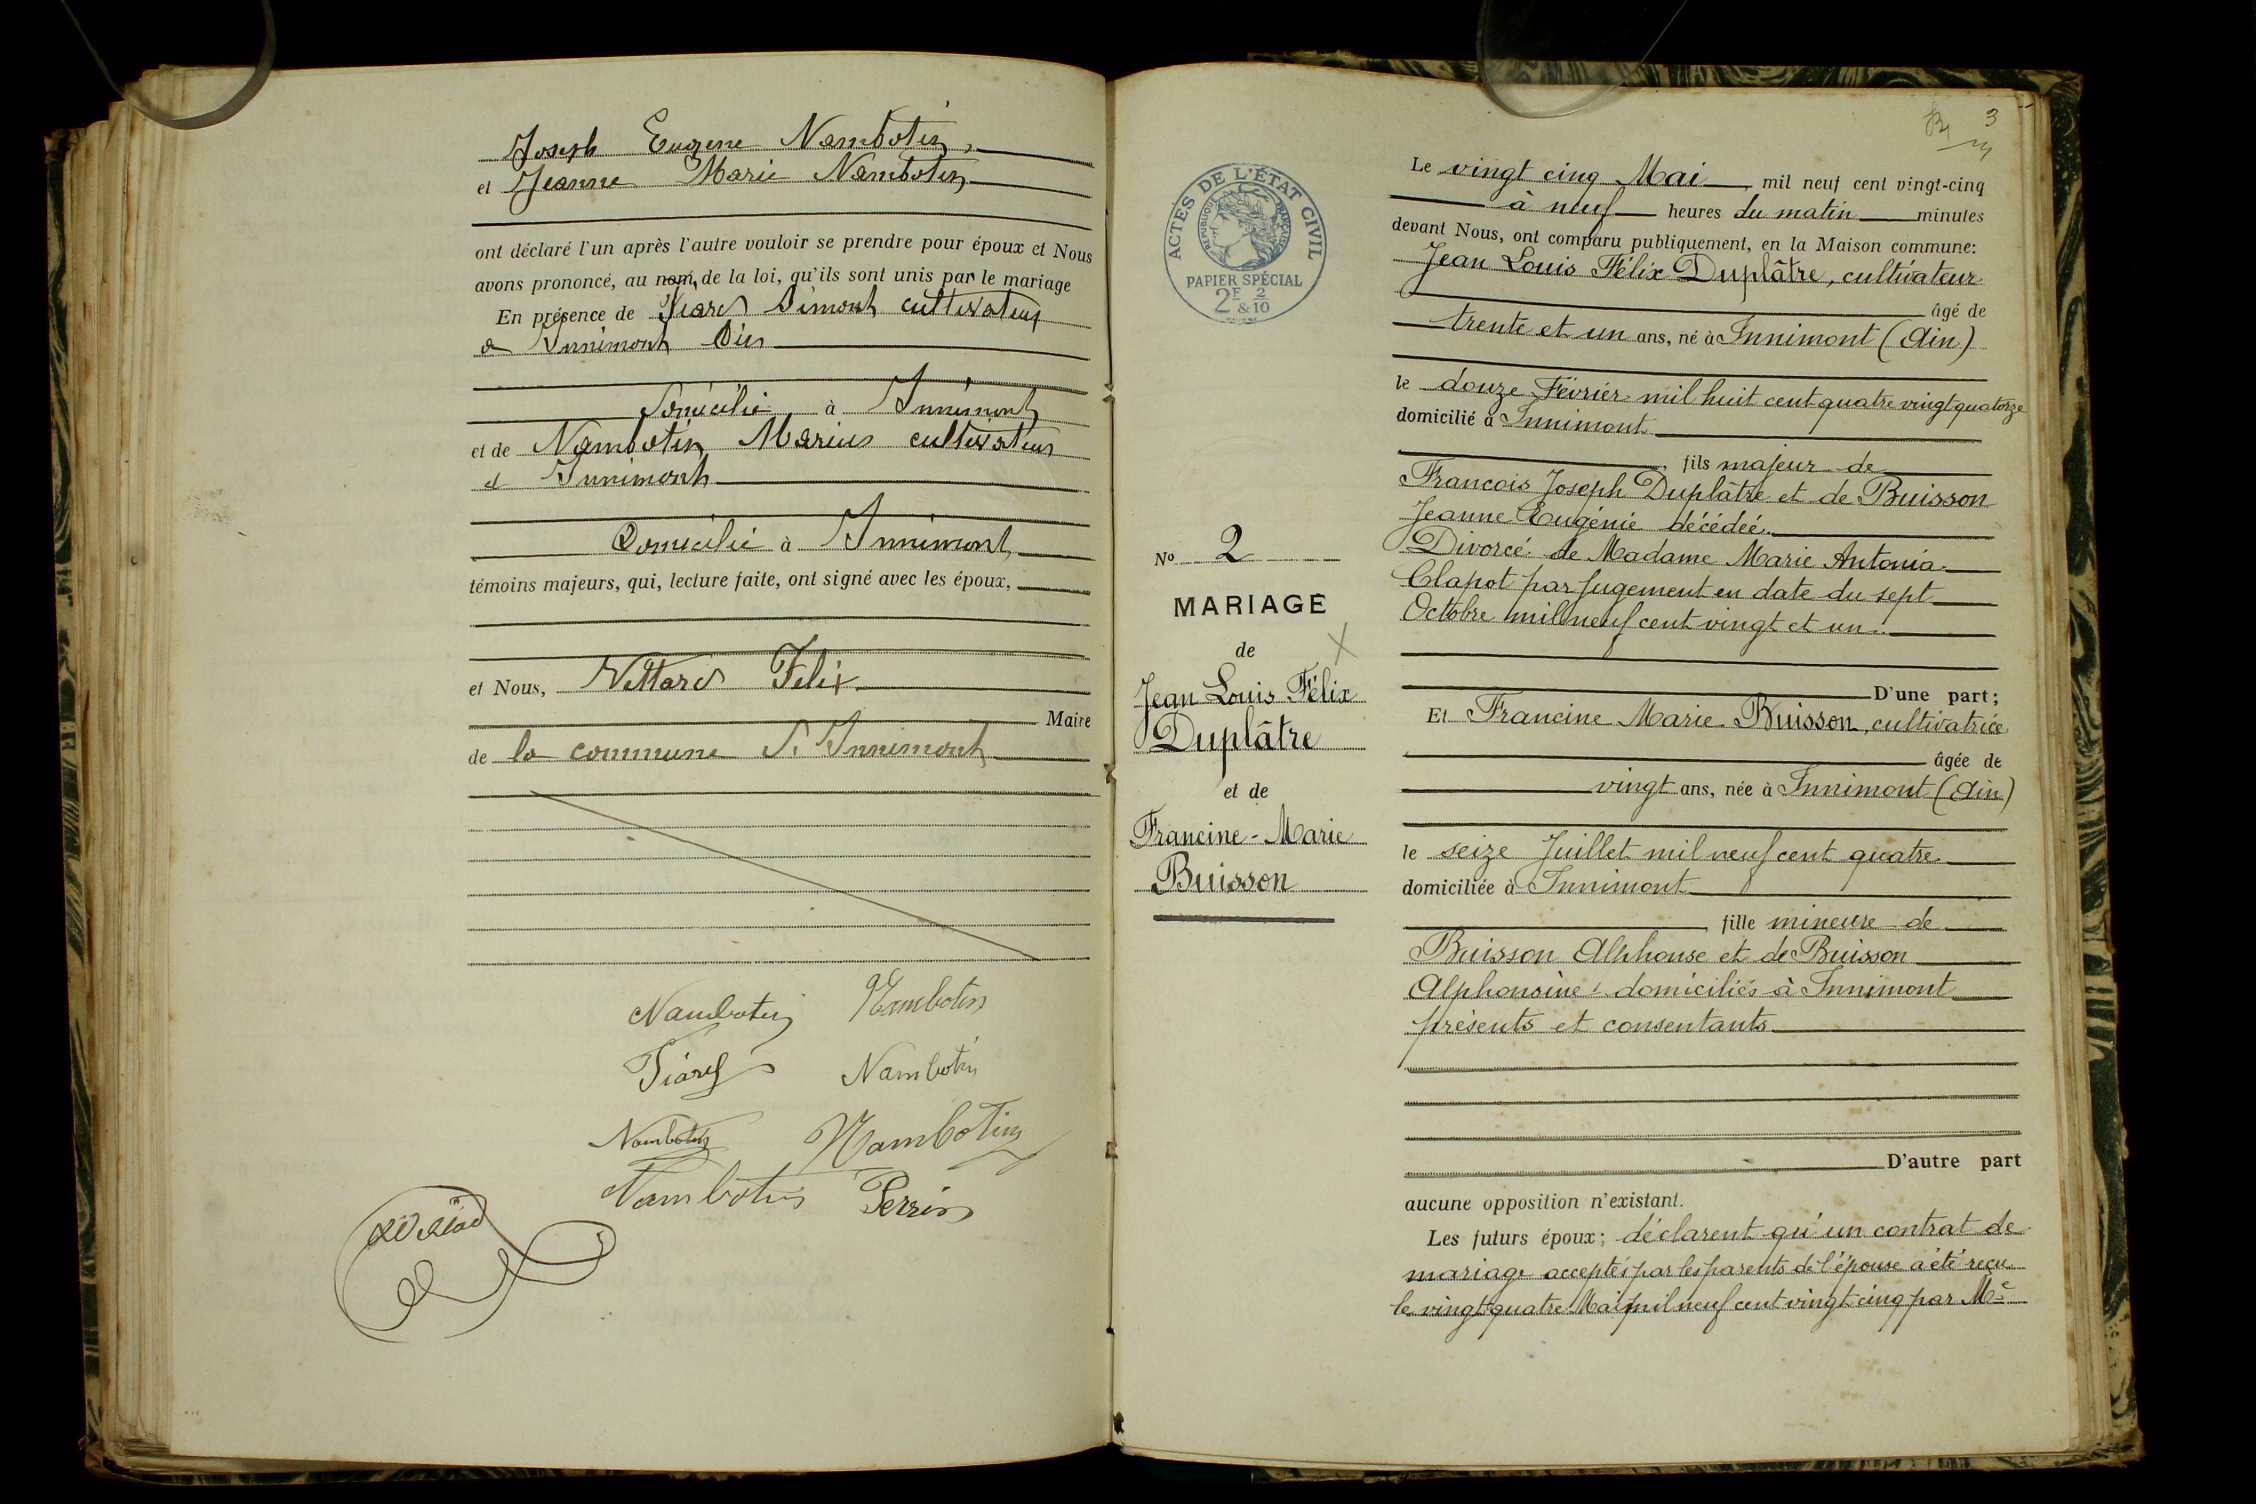 Joseph Eugene Nambotin,
et Jeanne Marie Nambotin
ont déclaré l'un après l'autre vouloir se prendre pour époux et Nous
avons prononcé, au nom, de la loi, qu'ils sont unis par le mariage
En présence de Simont cultivateur
a Innimont Ain
Domicilié à Innimont
et de Nambotin Marius cultivateur
a Innimont
Domicilié à Innimont
témoins majeurs, qui, lecture faite, ont signé avec les époux,
et Nous, Vettard Felix
Maire
de la commune d'Innimont
Nambotin Nambotin
Nambotin
Nambotin Nambotin
Nambotin Perrin
3
ACTES DE L'ÉTAT CIVIL
RÉPUBLIQUE FRANÇAISE
PAPIER SPÉCIAL
2F & 2/10
No 2
MARIAGE
de
Jean Louis Félix
Duplâtre
et de
Francine-Marie
Buisson
Le vingt cinq Mai mil neuf cent vingt-cinq
à neuf heures du matin minutes
devant Nous, ont comparu publiquement, en la Maison commune:
Jean Louis Félix Duplâtre, cultivateur
âgé de
trente et un ans, né à Innimont (Ain)
le douze Février mil huit cent quatre vingt quatorze
domicilié à Innimont
, fils majeur de
Francois Joseph Duplâtre et de Buisson
Jeanne Eugénie décédée.
Divorcé de Madame Marie Antonia
Clapot par jugement en date du sept
Octobre mil neuf cent vingt et un.
D'une part;
Et Francine Marie Buisson, cultivatrice
âgée de
vingt ans, née à Innimont (Ain)
le seize Juillet mil neuf cent quatre
domiciliée à Innimont
, fille mineure de
Buisson Alphonse et de Buisson
Alphonsine, domiciliés à Innimont
présents et consentants
D'autre part
aucune opposition n'existant.
Les futurs époux; déclarent qu'un contrat de
mariage acceptés par les parents de l'épouse a été reçu
le vingt quatre Mai mil neuf cent vingt cinq par Me